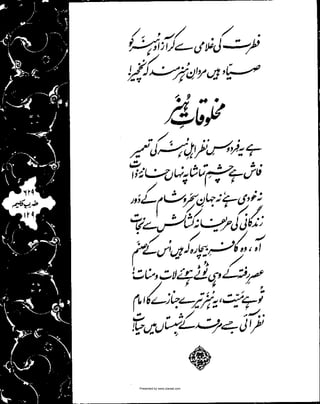 فطرت کی غلامی سے کر آزاد ہنر کو
صیاد ہیں مردانِ ہنرمند کہ نخچیر!
مخلوقاتِ ہنر
ہے یہ فردوسِ نظر اہلِ ہنر کی تعمیر
فاش ہے چشمِ تماشا پہ نہاں خانۂ ذات
نہ خودی ہے نہ جہانِ سحر و شام کے دور
زندگانی کی حریفانہ کشاکش سے نجات
آہ، وہ کافرِ بیچارہ کہ ہیں اس کے صنم
عصرِ رفتہ کے وہی ٹوٹے ہوئے لات و منات!
تو ہے میت، یہ ہنر تیرے جنازے کا امام
نظر آئی جسے مرقد کے شبستاں میں حیات!
۶۲۹
ضربِ کلیم
۱۲۹